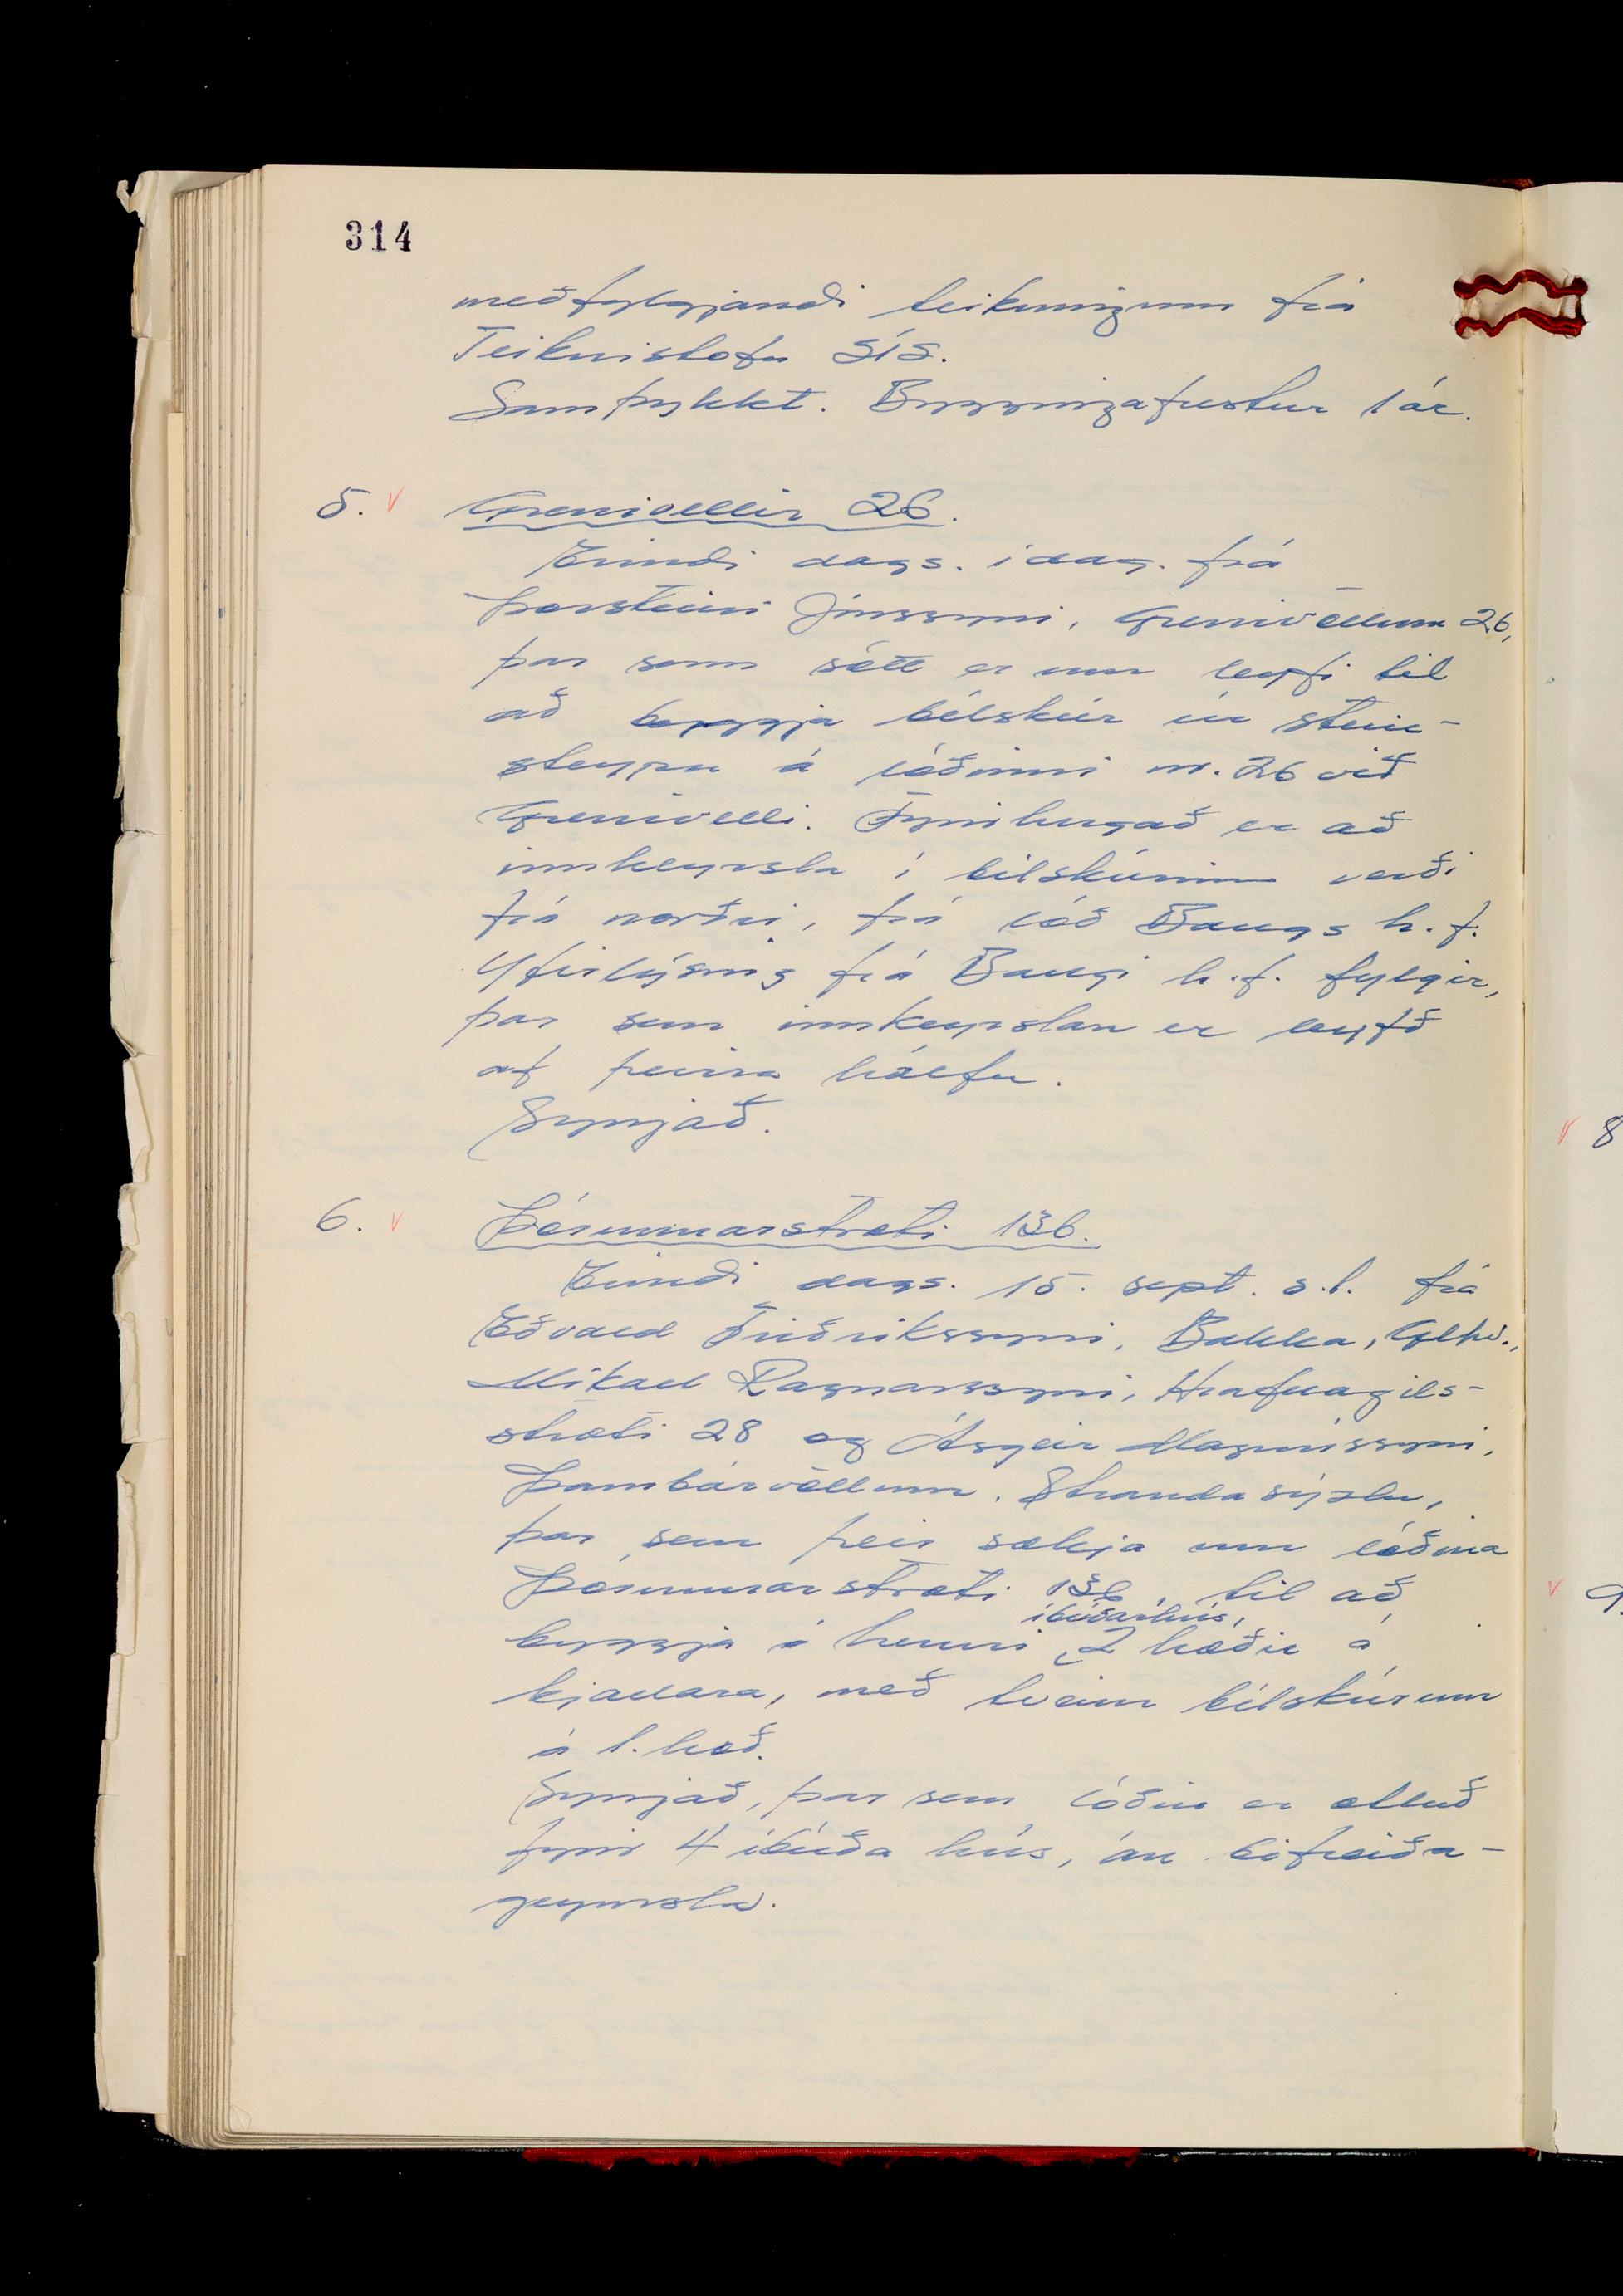 314
meðfylgjandi teikningum frá
Teiknistofu SÍS.
Samþykkt. Byggingafrestur 1 ár.
5. v Grenivellir 26.
Erindi dags. í dag. frá
Þorsteini Jónssyni, Grenivöllum 26,
þar sem sótt er um leyfi til
að byggja bílskúr úr stein-
steypu á lóðinni nr. 26 við
Grenivelli. Fyrirhugað er að
innkeyrsla í bílskúrinn verði
frá norðri, frá lóð Baugs h.f.
Yfirlýsing frá Baugi h.f. fylgir,
þar sem innkeyrslan er leyfð
af þeirra hálfu.
Synjað.
6. v Þórunnarstræti 136.
Erindi dags. 15. sept. s.l. frá
Eðvald Friðrikssyni, Bakka, Glhv.,
Mikael Ragnarssyni, Hrafnagils-
stræti 28 og Ásgeir Magnússyni,
Þambárvöllum, Strandasýslu,
þar sem þeir sækja um lóðina
Þórunnarstræti 136, til að
íbúðarhús,
byggja á henni 2 hæðir á
kjallara, með tveim bílskúrum
á 1. hæð.
Synjað, þar sem lóðin er ætluð
fyrir 4 íbúða hús, án bifreiða-
geymsla.
v 8
v 9.